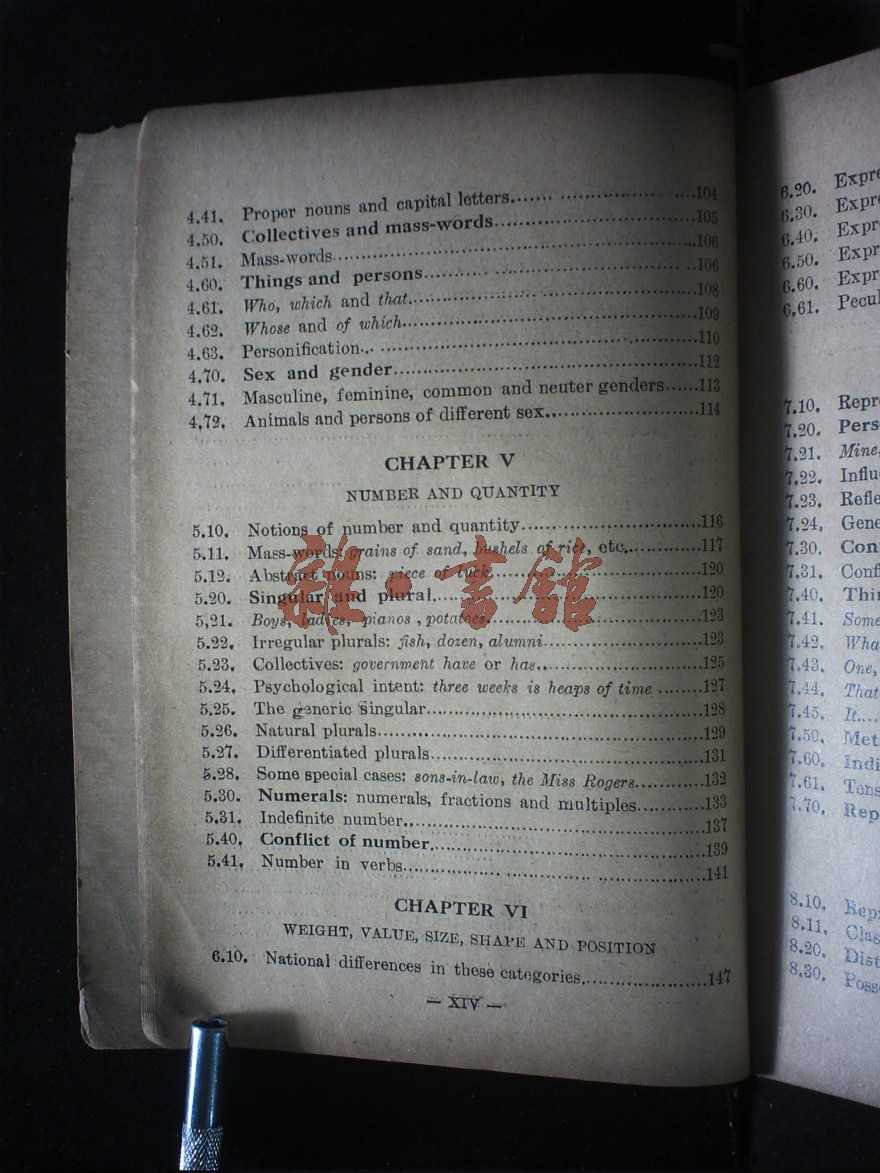 4.41. Proper nouns and capital letters....... ....................104
4.50. Collectives and mass-words..............................105
4.51. Mass-words..............................106
4.60. Things and persons..............................106
4.61. Who, which and that..............................108
4.62. Whose and of which..............................109
4.63. Personification... ..............................110
4.70. Sex and gender..............................112
4.71. Masculine, feminine, common and neuter genders......113
4,72. Animals and persons of different sex..............................114
CHAPTER V
NUMBER AND QUANTITY
5.10. Notions of number and quantity..............................116
5.11. Mass-words: grains of sand, bushels of rice, etc...............117
5.12. Abstract nouns: piece of luck..............................120
5.20. Singular and plural..............................120
5,21. Boys, ladies, pianos , potatoes..............................123
5.22. Irregular plurals: fish, dozen, alumni..............................123
5.23. Collectives: government have or has..............................125
5.24. Psychological intent: three weeks is heaps of time ........127
5.25. The generic singular..............................128
5.26. Natural plurals..............................129
5.27. Differentiated plurals..............................131
5.28. Some special cases: sons-in-law, the Miss Rogers............132
5.30. Numerals: numerals, fractions and multiples............133
5.31. Indefinite number..............................137
5.40. Conflict of number..............................139
5.41. Number in verbs..............................141
CHAPTER VI
WEIGHT, VALUE, SIZE, SHAPE AND POSITION
6.10. National differences in these categories.....................147
— XIV —
雜·書館
6.20. Expre
6.30. Expre
6.40. Expr
6.50. Expr
6.60. Expr
6,61. Pecul
7.10. Repr
7.20. Pers
7.21. Mine,
7.22. Influ
7.23. Refle
7.24. Gene
7.30. Con
7.31. Confl
7.40. Thin
7.41. Some
7.42. Wha
7.43. One,
7.44. That
7.45. It....
7.50. Met
7.60. Indi
7.61. Tens
7.70. Rep
8.10. Repr
8.11. Clas
8.20. Dist
8.30. Posse